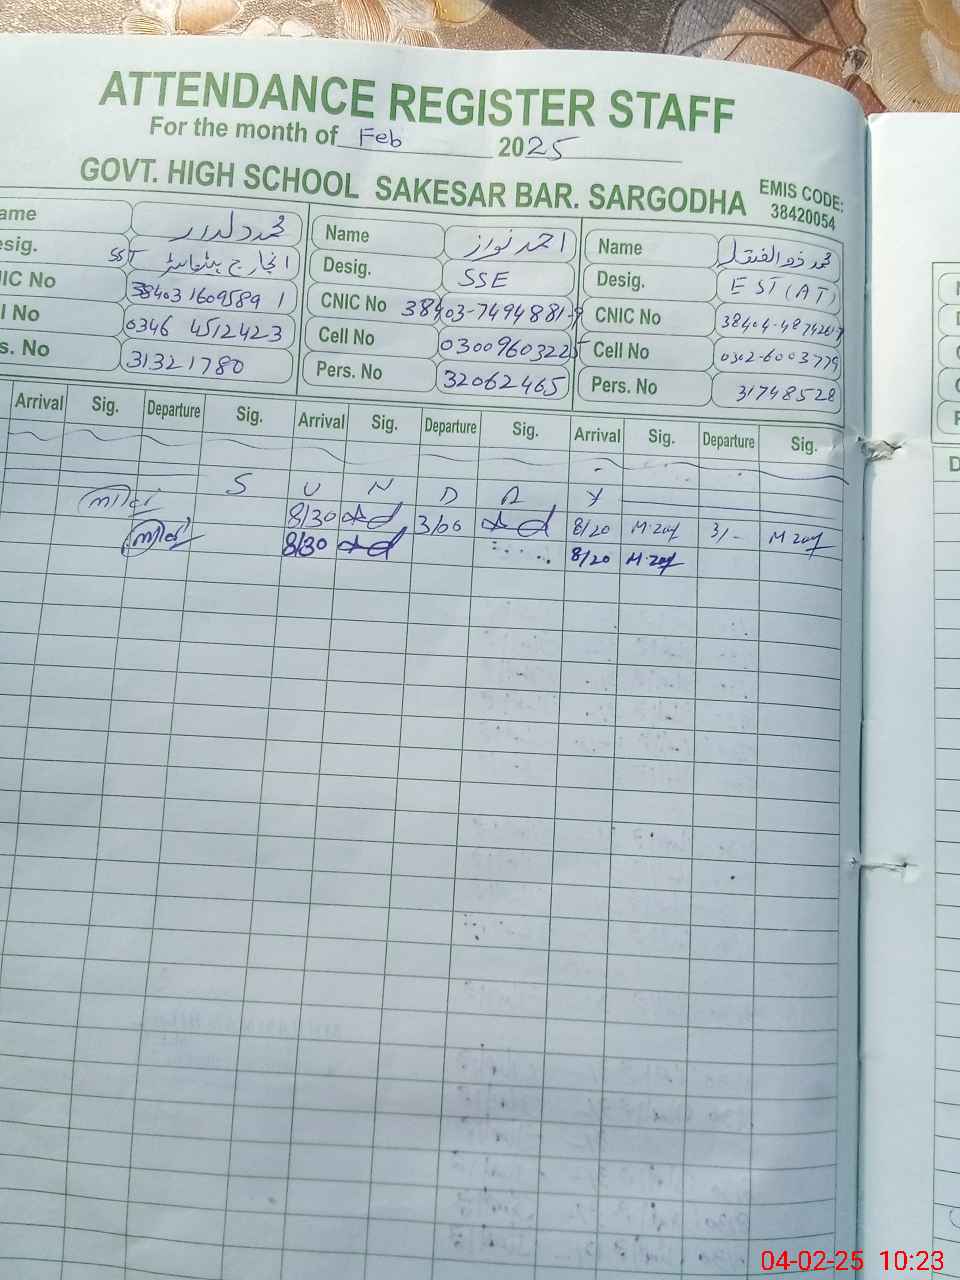 ATTENDANCE REGISTER STAFF
For the month of Feb 2025
GOVT. HIGH SCHOOL SAKESAR BAR. SARGODHA
EMIS CODE: 38420054
ame محمد دلدار
esig. SST انچارج ہیڈماسٹر
IC No 38403 1609589 1
l No 0346 4512423
s. No 31321780
Name احمد نواز
Desig. SSE
CNIC No 38403-7494881-9
Cell No 03009603225
Pers. No 32062465
Name محمد ذوالفقار
Desig. EST(AT)
CNIC No
Cell No 0302-6003779
Pers. No 31748528
Arrival Sig. Departure Sig. Arrival Sig. Departure Sig. Arrival Sig. Departure Sig.
S U N D A Y
8/30 3/00 8/20 M.zaf 3/- M zaf
8/30 8/20 M.zaf
D
04-02-25 10:23